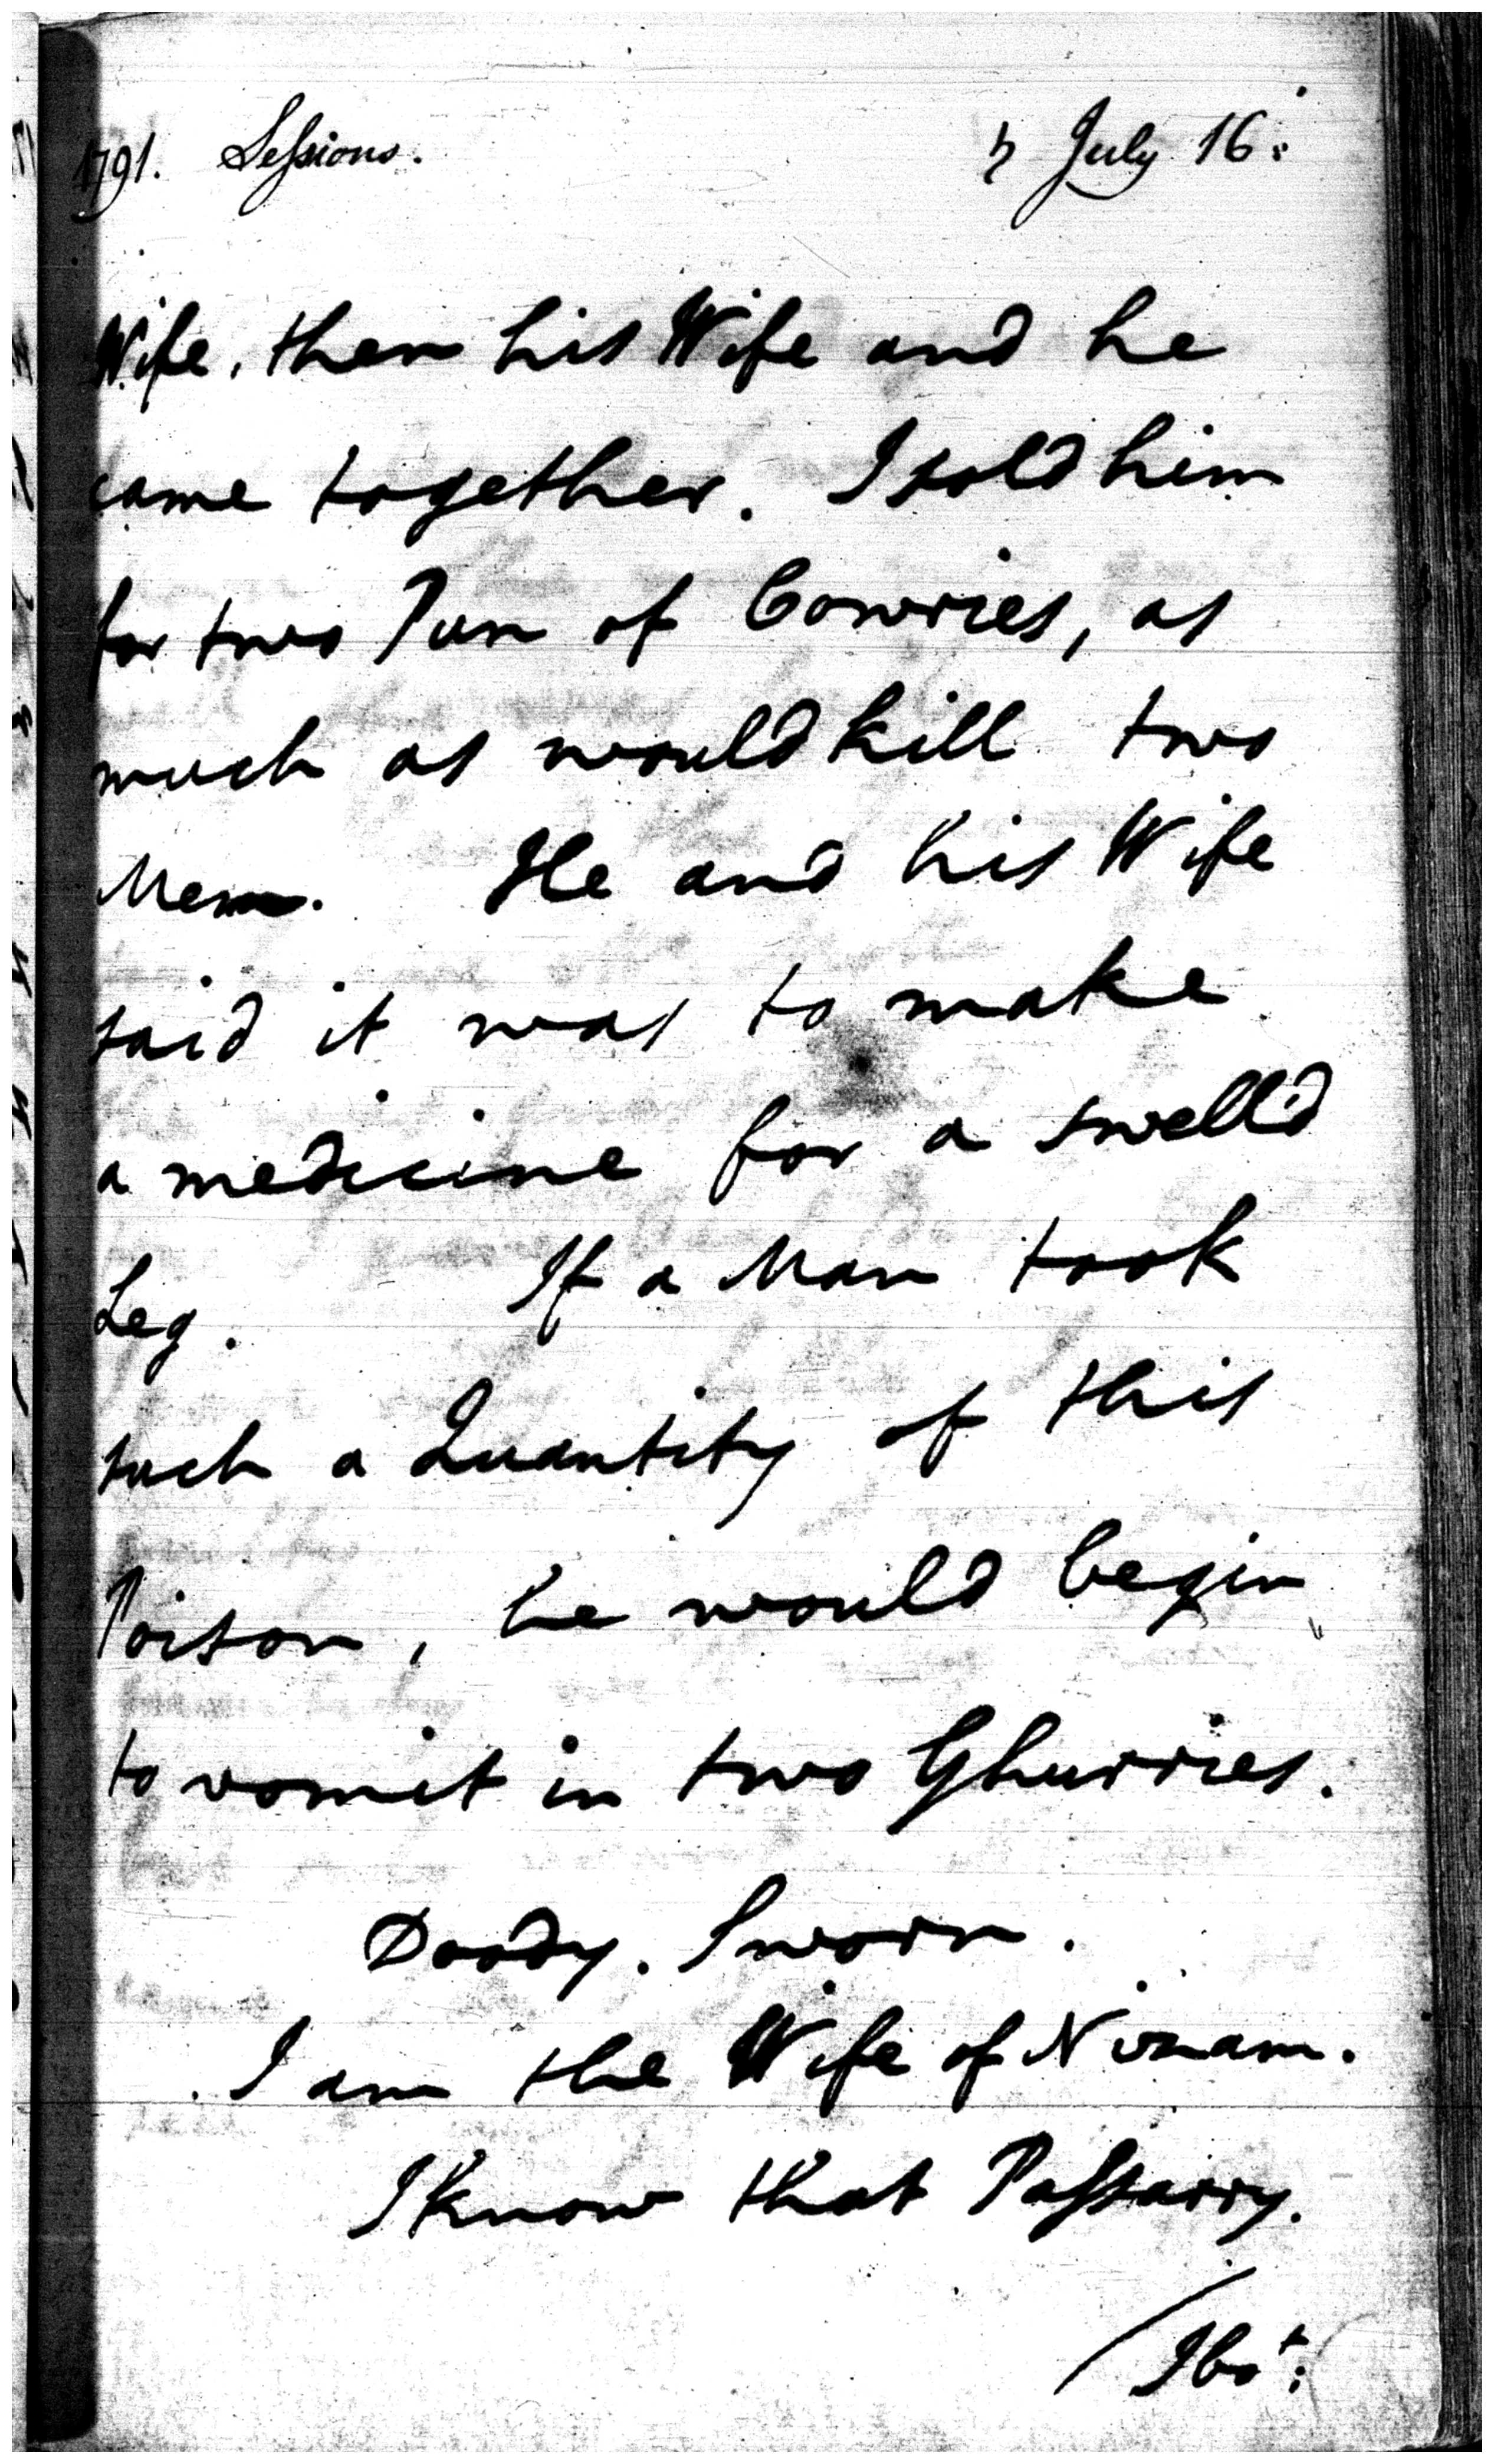 1791. Sessions. ♄ July 16:
Wife, then his Wife and he
came together. I sold him
for two Pun of Cowries, as
much as would kill two
Men. He and his Wife
said it was to make
a medicine for a swell'd
Leg. If a Man took
such a Quantity of this
Poison, he would begin
to vomit in two Ghurries.
Doody. Sworn.
I am the Wife of Nizam.
I know that Passarry.
/I bot: